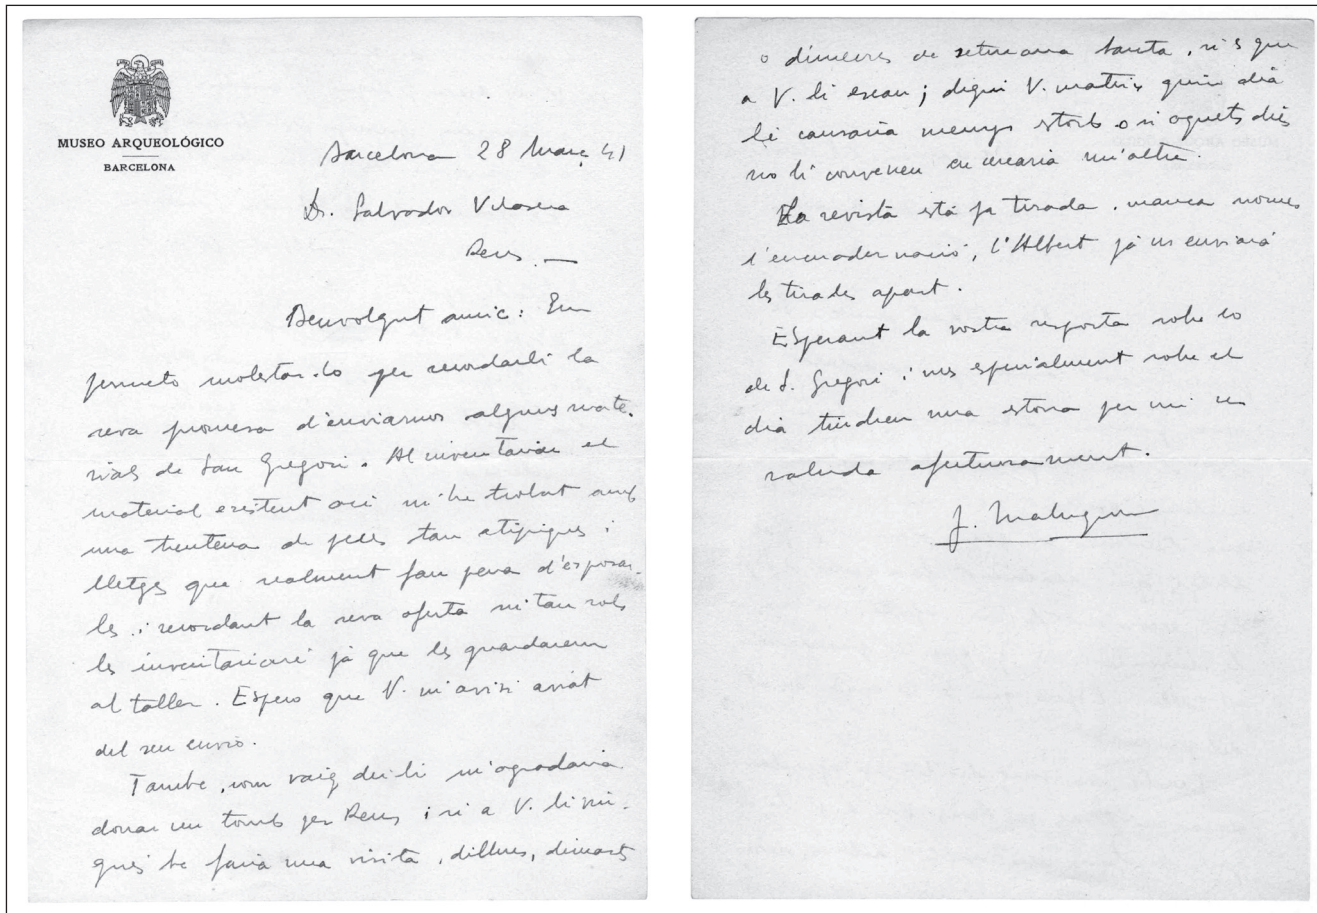 MUSEO ARQUEOLÓGICO
BARCELONA
Barcelona 28 Març 41
Dr. Salvador Vilaseca
Reus. —
Benvolgut amic: Em
permeto molestar-lo per recordarli la
seva promesa d'enviarnos alguns mate-
rials de San Gregori. Al inventariar el
material existent aci m'he trobat amb
una trentena de peces tan atipiques i
lletges que realment fan pena d'exposar-
les i recordant la seva oferta ni tan sols
les inventariaré já que les guardarem
al taller. Espero que V. m'avisi aviat
del seu envio.
Tambe, com vaig dir-li m'agradaria
donar un tomb per Reus i si a V. li vin-
gués be faria una visita, dilluns, dimarts
o dimecres de setmana santa, si s que
a V. li escau; digui V. mateix quin dia
li causaria menys estorb o si aquets dies
no li convenen en cercaria un'altre.
La revista está ja tirada, manca nomes
l'encuadernació, l'Albert já us enviará
les tirades apart.
Esperant la vostra resposta sobre lo
de S. Gregori i mes especialment sobre el
dia tindreu una estona per mi us
saluda afectuosament.
J. Maluquer